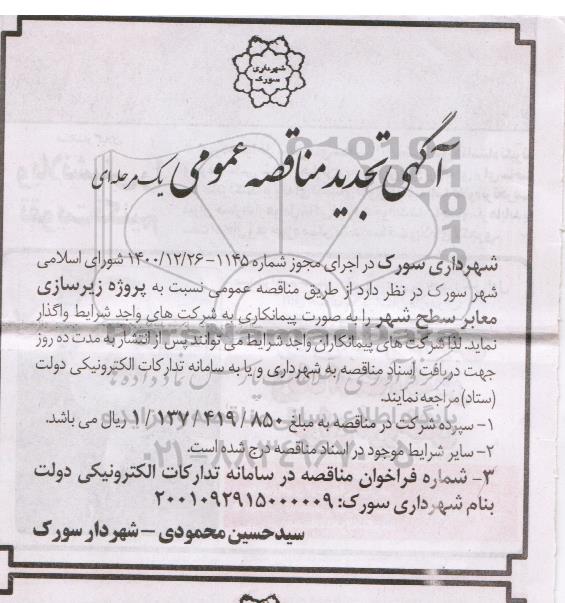 شهرداری
سورک
آگهی تجدید مناقصه عمومی یک مرحله‌ای
شهرداری سورک در اجرای مجوز شماره ۱۱۴۵-۱۴۰۰/۱۲/۲۶ شورای اسلامی
شهر سورک در نظر دارد از طریق مناقصه عمومی نسبت به پروژه زیرسازی
معابر سطح شهر را به صورت پیمانکاری به شرکت های واجد شرایط واگذار
نماید. لذا شرکت های پیمانکاران واجد شرایط می توانند پس از انتشار به مدت ده روز
جهت دریافت اسناد مناقصه به شهرداری و یا به سامانه تدارکات الکترونیکی دولت
(ستاد) مراجعه نمایند.
۱- سپرده شرکت در مناقصه به مبلغ ۱/۱۳۷/۴۱۹/۸۵۰ ریال می باشد.
۲- سایر شرایط موجود در اسناد مناقصه درج شده است.
۳- شماره فراخوان مناقصه در سامانه تدارکات الکترونیکی دولت
بنام شهرداری سورک: ۲۰۰۱۰۹۲۹۱۵۰۰۰۰۰۹
سیدحسین محمودی – شهردار سورک